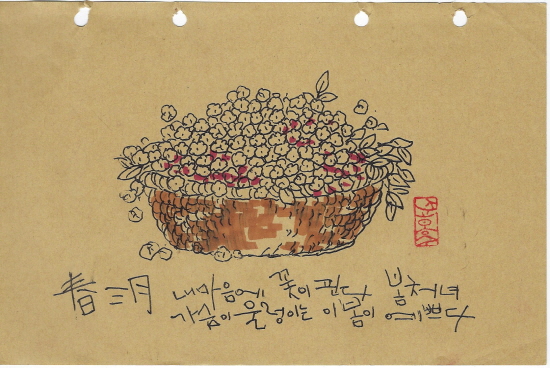 春三月 내마음에 꽃이 핀다 봄처녀
가슴이 울렁이는 이 봄이 예쁘다